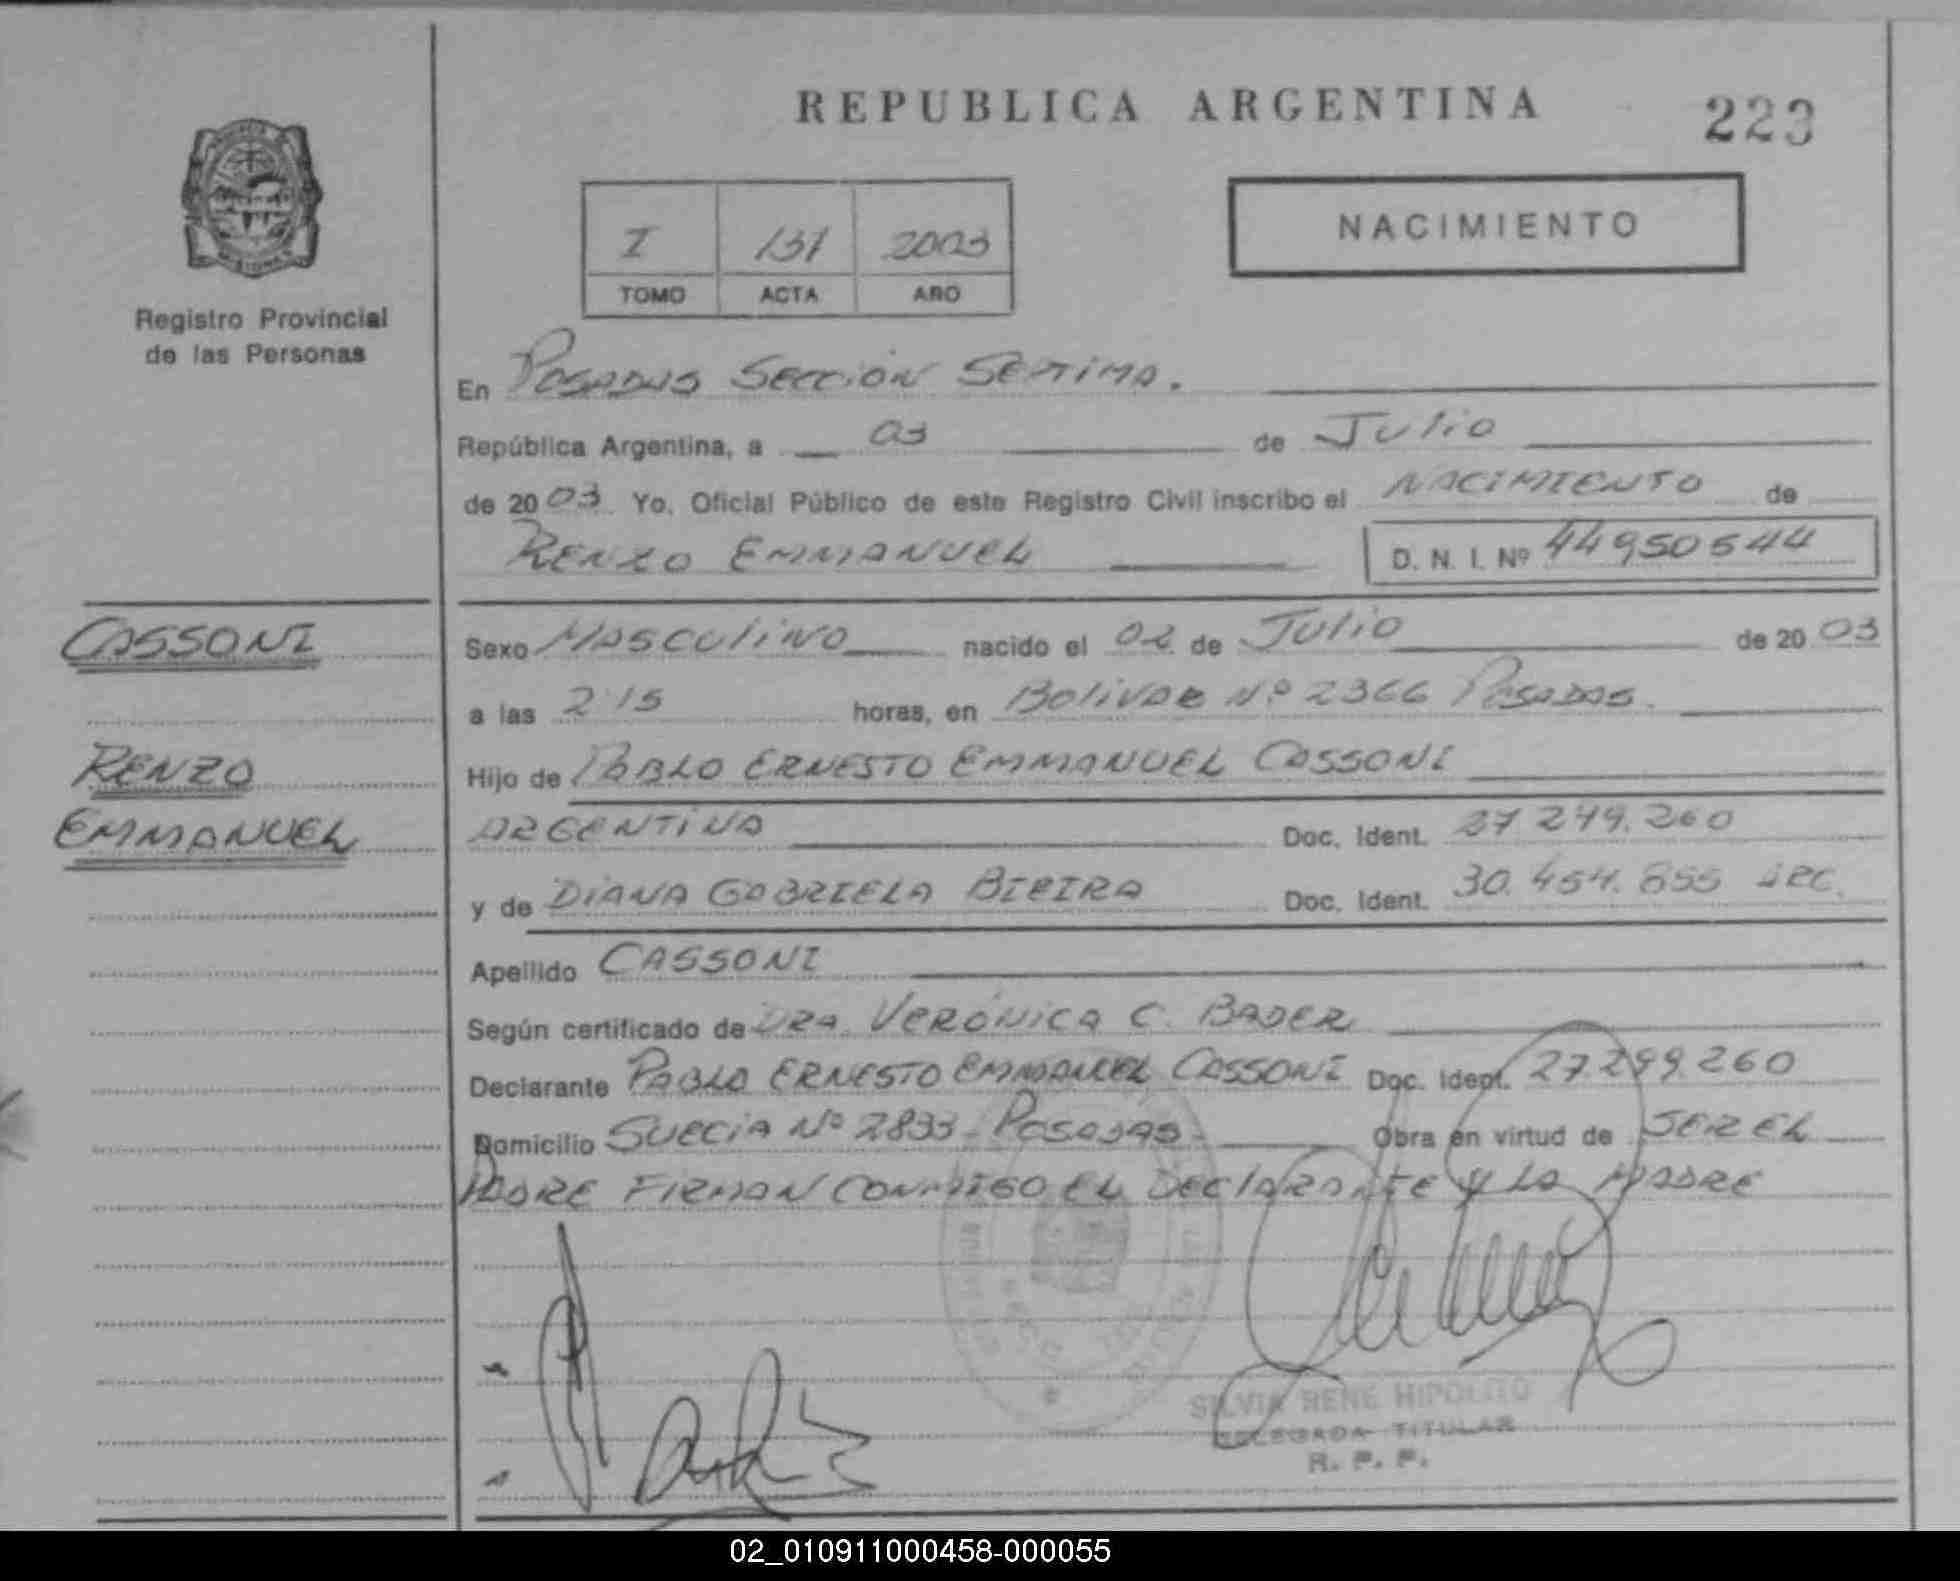 REPUBLICA ARGENTINA
223
NACIMIENTO
I 131 2003
TOMO ACTA AÑO
Registro Provincial
de las Personas
En POSADAS SECCION SEPTIMA.
República Argentina, a 03 de Julio
de 2003 Yo, Oficial Público de este Registro Civil inscribo el NACIMIENTO de
RENZO EMMANUEL D. N. I. Nº 44950544
CASSONI
RENZO
EMMANUEL
Sexo MASCULINO nacido el 02 de Julio de 2003
a las 2 15 horas, en BOLIVAR Nº 2366 POSADAS.
Hijo de PABLO ERNESTO EMMANUEL CASSONI
ARGENTINA Doc. Ident.
y de DIANA GABRIELA Doc. Ident. 30.454.855 ARG.
Apellido CASSONI
Según certificado de DRA. VERÓNICA C. BADER
Declarante PABLO ERNESTO EMMANUEL CASSONI Doc. Ident.
Domicilio SUECIA Nº 2833 - POSADAS - Obra en virtud de SER EL
PADRE FIRMAN CONMIGO EL DECLARANTE Y LA MADRE
SILVIA RENE HIPOLITO
DELEGADA TITULAR
R. P. P.
02_010911000458-000055